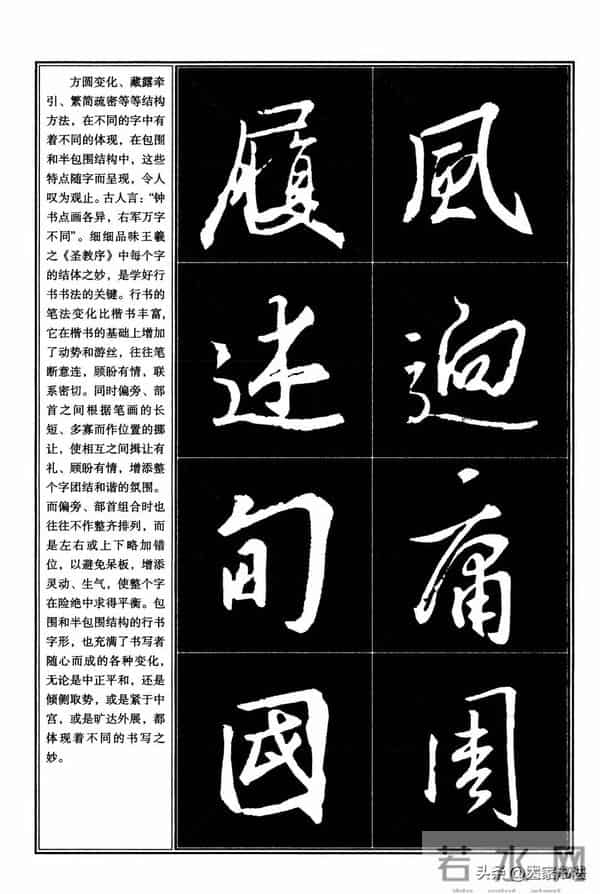 方圆变化、藏露牵
引、繁简疏密等等结构
方法，在不同的字中有
着不同的体现，在包围
和半包围结构中，这些
特点随字而呈现，令人
叹为观止。古人言：“钟
书点画各异，右军万字
不同”。细细品味王羲
之《圣教序》中每个字
的结体之妙，是学好行
书书法的关键。行书的
笔法变化比楷书丰富，
它在楷书的基础上增加
了动势和游丝，往往笔
断意连，顾盼有情，联
系密切。同时偏旁、部
首之间根据笔画的长
短、多寡而作位置的挪
让，使相互之间揖让有
礼、顾盼有情，增添整
个字团结和谐的氛围。
而偏旁、部首组合时也
往往不作整齐排列，而
是左右或上下略加错
位，以避免呆板，增添
灵动、生气，使整个字
在险绝中求得平衡。包
围和半包围结构的行书
字形，也充满了书写者
随心而成的各种变化，
无论是中正平和，还是
倾侧取势，或是紧于中
宫，或是旷达外展，都
体现着不同的书写之
妙。
風
逈
庸
周
履
述
旬
國
若水网
头条